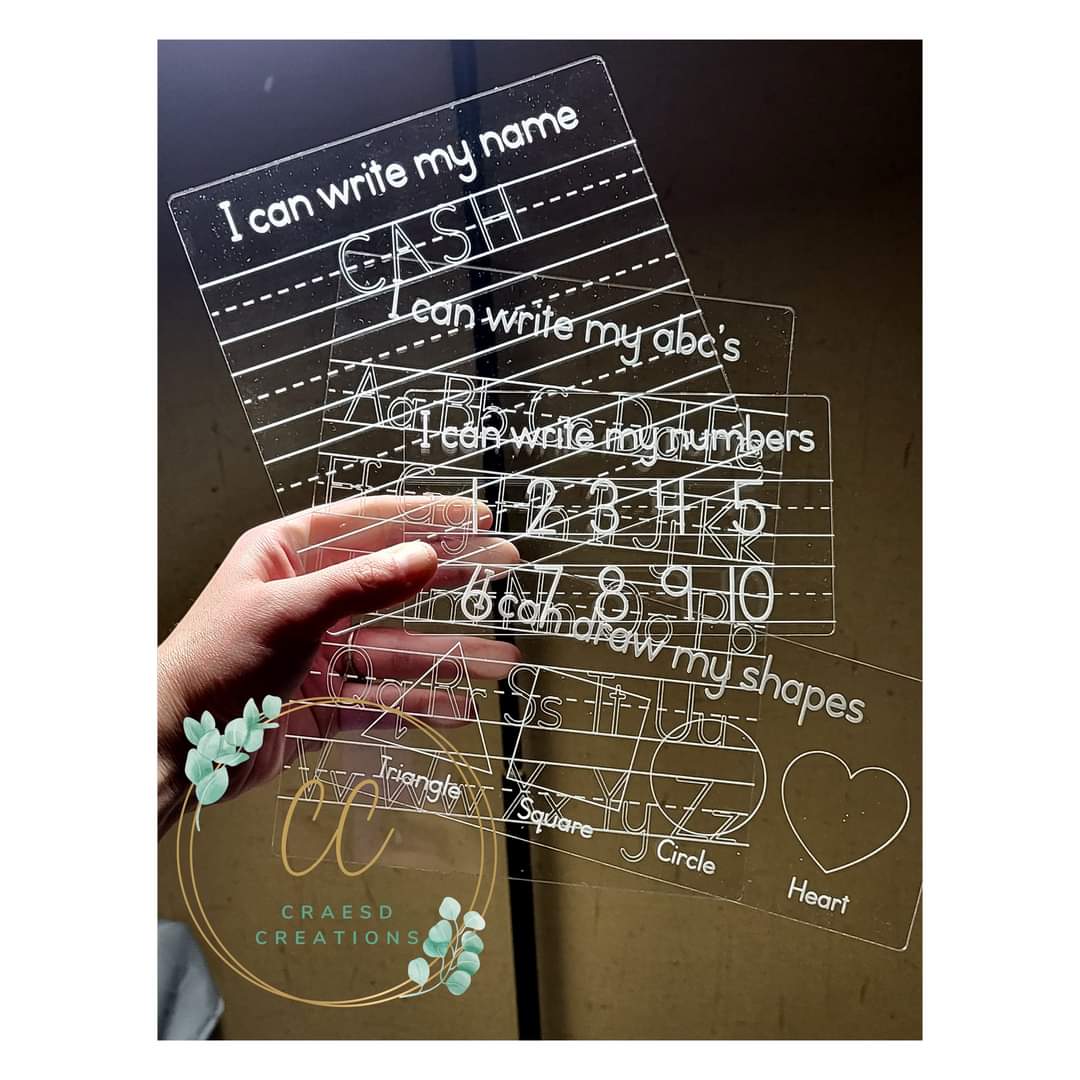 I can write my name
CASH
I can write my abc's
Aa Bb Cc Dd Ee
I can write my numbers
Ff Gg
1 2 3 4 5
Kk
6 7 8 9 10
Pp
I can draw my shapes
Qq Rr Ss Tt Uu
Vv Ww Xx Yy Zz
Triangle
Square
Circle
Heart
CC
CRAESD
CREATIONS